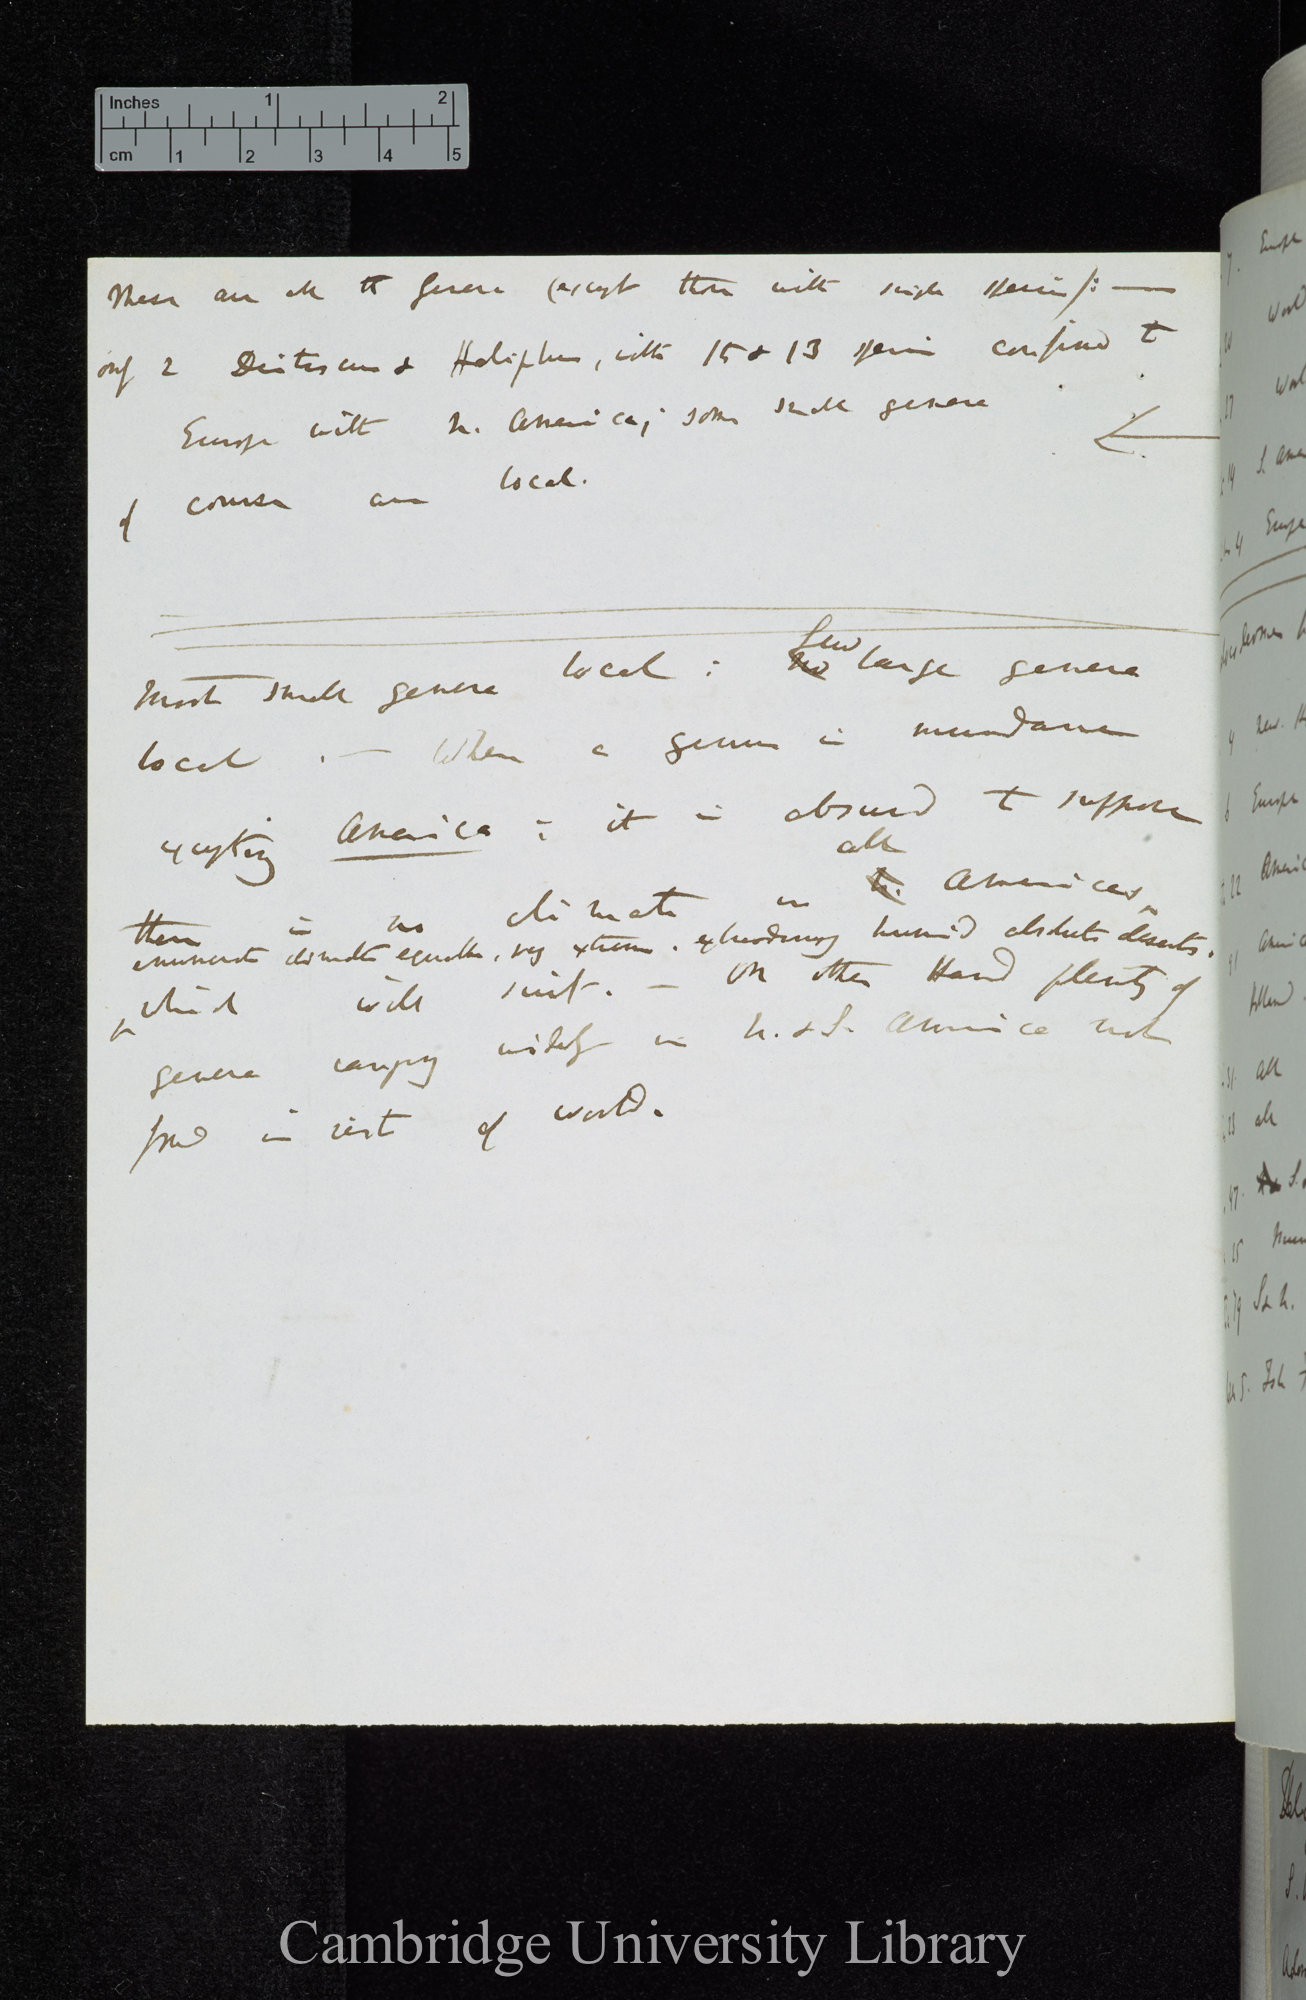 Inches 1 2
cm 1 2 3 4 5
These are all the Genera (except those with single species): —
only 2 & Haliplus, with 15 & 13 species confined to
Europe with N. America; some small genera
of course are local.
Most small genera local : few no large genera
local . — When a genus is mundane
excepting America : it is absurd to suppose
there is no climate in all N. Americas
enumerate climate equable, very extreme . extraordinary humid absolute deserts .
which will suit. — On other Hand plenty of
genera ranging widely in N. & S. America not
found in rest of world.
Europe
World
World
S. Amer
Europe
Europe
Americ
all
all
Cambridge University Library